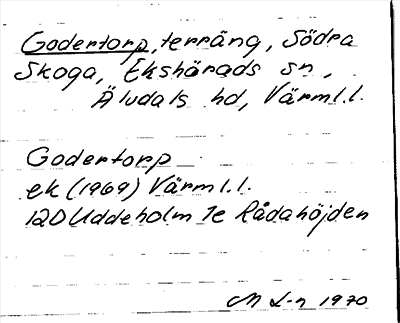 Godertorp, terräng, Södra
Skoga, Ekshärads sn,
Äludals hd, Värml.l.
Godertorp
ek (1969) Värml.l.
12D Uddeholm 1e Rådahöjden
M L-n 1970